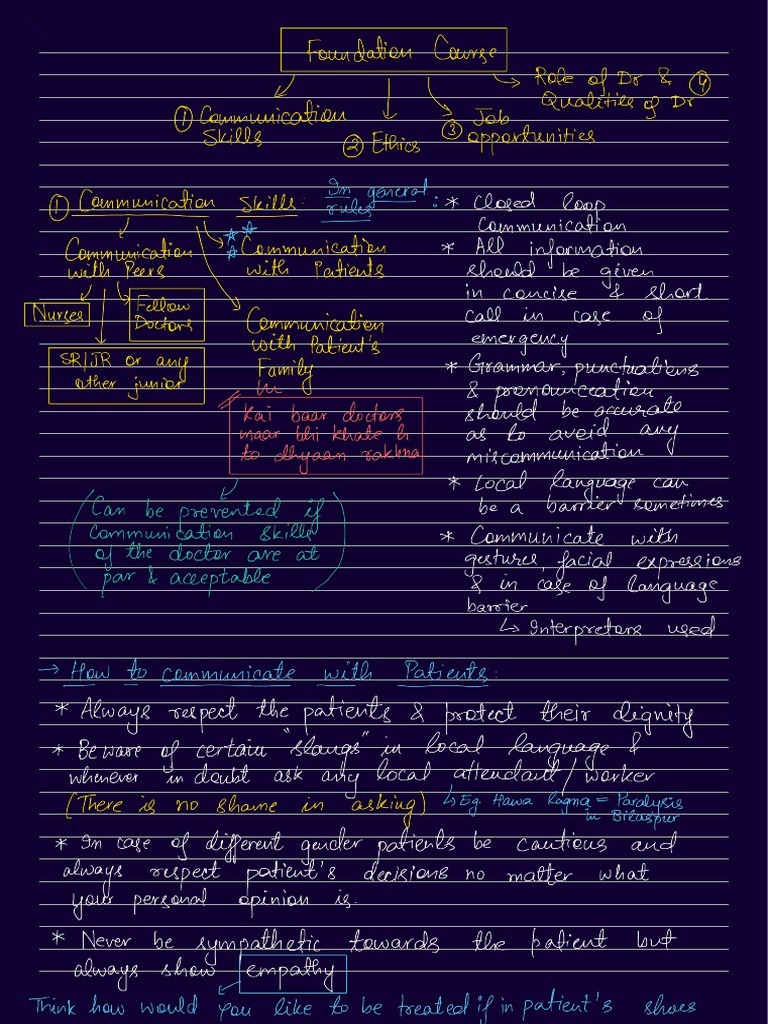 Foundation Course
① Communication Skills
② Ethics
③ Job opportunities
Role of Dr & ④
Qualities of Dr
① Communication Skills: In general rules:
Communication
with Peers
Nurses
Fellow
Doctors
SR/JR or any
other junior
Communication
with Patients
Communication
with Patient's
Family
Kai baar doctors
maar bhi khate h
to dhyaan rakhna
(Can be prevented if
communication skills
of the doctor are at
par & acceptable)
* Closed loop
communication
* All information
should be given
in concise & short
call in case of
emergency
* Grammar, punctuations
& pronounceation
should be accurate
as to avoid any
miscommunication
* Local language can
be a barrier sometimes
* Communicate with
gestures, facial expressions
& in case of language
barrier
↳ Interpretors used
→ How to communicate with Patients:
* Always respect the patients & protect their dignity
* Beware of certain "slangs" in local language &
whenever in doubt ask any local attendant/worker
(There is no shame in asking) ↳ Eg. Hawa lagna = Paralysis
in Bilaspur
* In case of different gender patients be cautious and
always respect patient's decisions no matter what
your personal opinion is.
* Never be sympathetic towards the patient but
always show empathy
Think how would you like to be treated if in patient's shoes